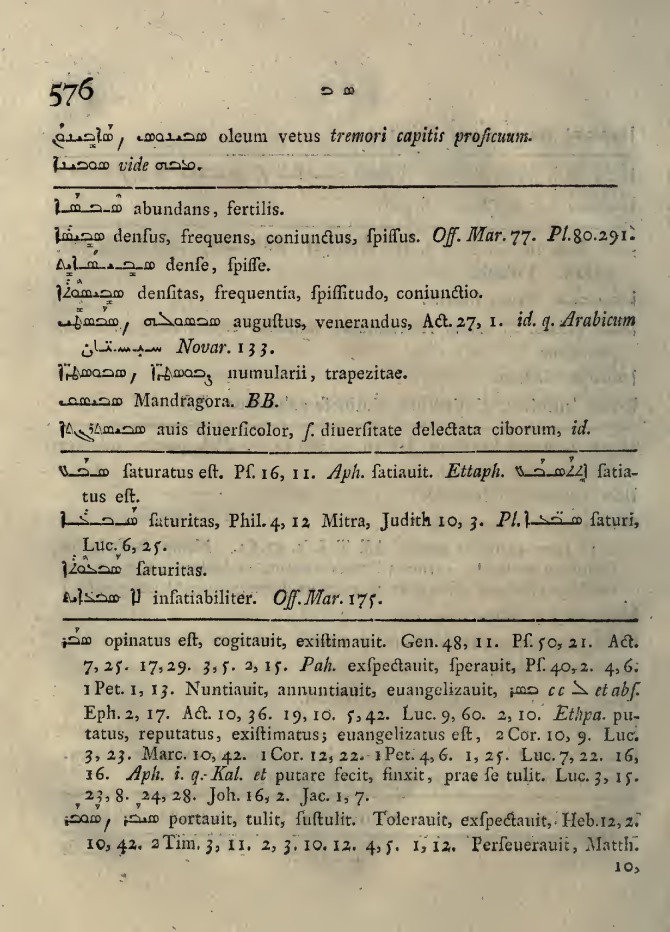 576 ܣ ܒ
oleum vetus tremori capitis proficuum.
vide
abundans, fertilis.
denſus, frequens, coniunctus, ſpiſſus. Off. Mar. 77. Pl. 80.291.
denſe, ſpiſſe.
denſitas, frequentia, ſpiſſitudo, coniunctio.
auguſtus, venerandus, Act. 27, 1. id. q. Arabicum
Novar. 133.
numularii, trapezitae.
Mandragora. BB.
auis diuerſicolor, ſ. diuerſitate delectata ciborum, id.
ſaturatus eſt. Pſ. 16, 11. Aph. ſatiauit. Ettaph. ſatia-
tus eſt.
ſaturitas, Phil. 4, 12 Mitra, Judith 10, 3. Pl. ſaturi,
Luc. 6, 25.
ſaturitas.
ܠܐ inſatiabiliter. Off. Mar. 175.
ܣܒܪ opinatus eſt, cogitauit, exiſtimauit. Gen. 48, 11. Pſ. 50, 21. Act.
7, 25. 17, 29. 3, 5. 2, 15. Pah. exſpectauit, ſperauit, Pſ. 40, 2. 4, 6.
1 Pet. 1, 13. Nuntiauit, annuntiauit, euangelizauit, cc ܠ et abſ.
Eph. 2, 17. Act. 10, 36. 19, 10. 5, 42. Luc. 9, 60. 2, 10. Ethpa. pu-
tatus, reputatus, exiſtimatus; euangelizatus eſt, 2 Cor. 10, 9. Luc.
3, 23. Marc. 10, 42. 1 Cor. 12, 22. 1 Pet. 4, 6. 1, 25. Luc. 7, 22. 16,
16. Aph. i. q. Kal. et putare fecit, finxit, prae ſe tulit. Luc. 3, 15.
23, 8. 24, 28. Joh. 16, 2. Jac. 1, 7.
portauit, tulit, ſuſtulit. Tolerauit, exſpectauit, Heb. 12, 2.
10, 42. 2 Tim. 3, 11. 2, 3. 10. 12. 4, 5. 1, 12. Perſeuerauit, Matth.
10,